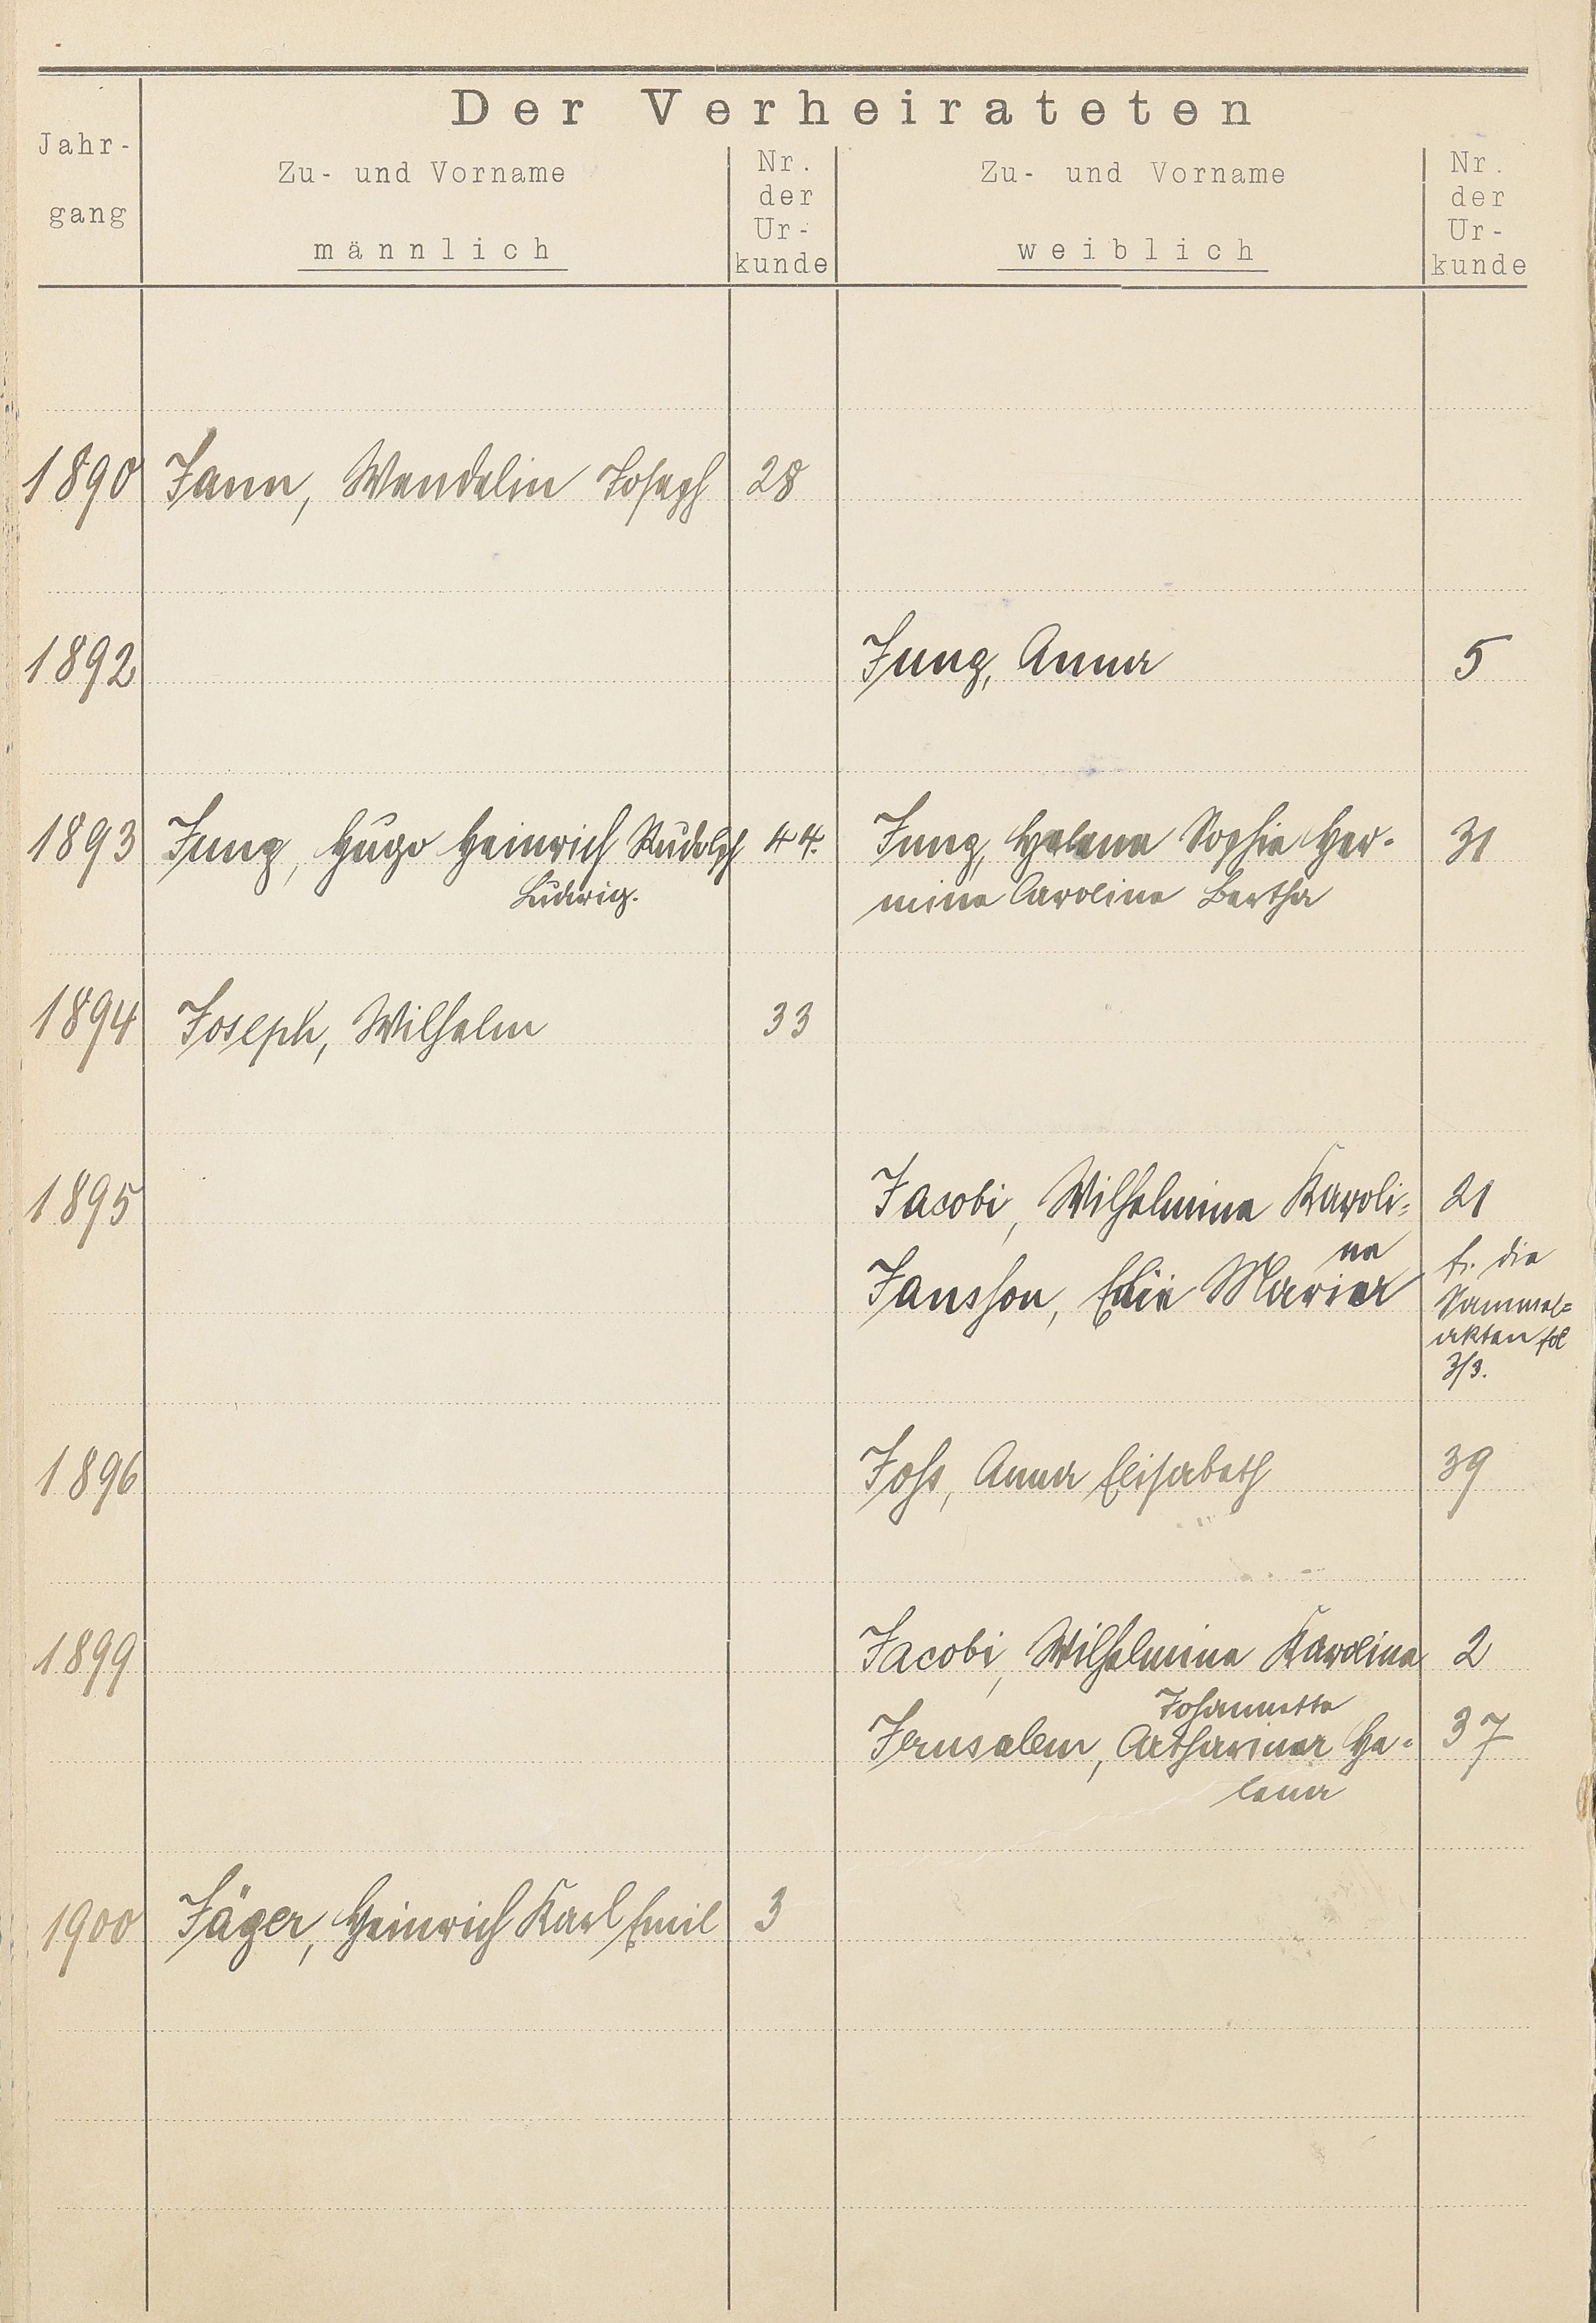 Der Verheirateten
Jahr-
gang
Zu- und Vorname
männlich
Nr.
der
Ur-
kunde
Zu- und Vorname
weiblich
Nr.
der
Ur-
kunde
1890 Jann, Wendelin Joseph 28
1892 Jung, Anna 5
1893 Jung, Hugo Heinrich Rudolph 44. Jung, Helene Sophie Her-
Ludwig. mine Caroline Bertha 31
1894 Joseph, Wilhelm 33
1895 Jacobi, Wilhelmine Karoli= 21
ne
Jansson, Maria
s. die
Sammel=
akten fol
3/3.
1896 Johs, Anna Elisabeth 39
1899 Jacobi, Wilhelmine Karoline 2
Johannette
Jerusalem, Catharina He= 37
lena
1900 Jäger, Heinrich Karl Emil 3